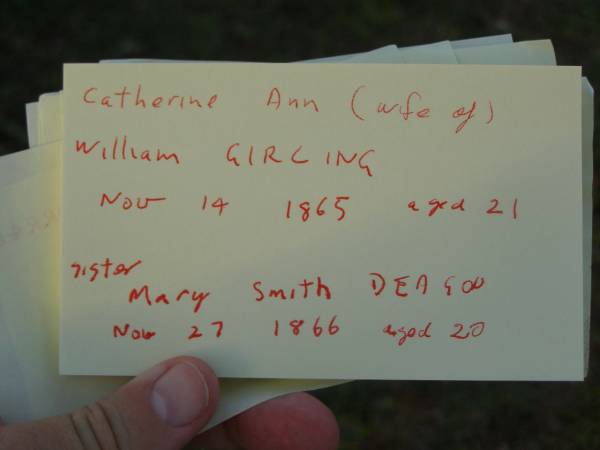 Catherine Ann (wife of)
William GIRLING
Nov 14 1865 aged 21
sister
Mary Smith DEAGON
Nov 27 1866 aged 20